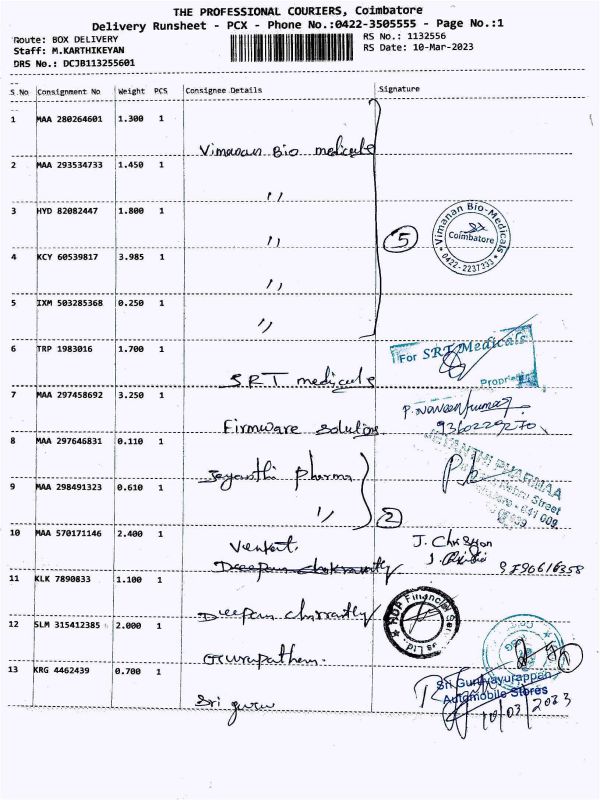 THE PROFESSIONAL COURIERS, Coimbatore
Delivery Runsheet - PCX - Phone No.:0422-3505555 - Page No.:1
Route: BOX DELIVERY
RS No.: 1132556
Staff: M.KARTHIKEYAN
RS Date: 10-Mar-2023
DRS No.: DCJB113255601
S.No Consignment No Weight PCS Consignee Details Signature
1 MAA 280264601 1.300 1
Vimanan Bio medicals
2 MAA 293534733 1.450 1
,,
3 HYD 82082447 1.800 1
,,
5
Vimanan Bio-Medicals
Coimbatore
0422-2237333
4 KCY 60539817 3.985 1
,,
5 IXM 503285368 0.250 1
,,
6 TRP 1983016 1.700 1
For SRT Medicals
SRT medicals
7 MAA 297458692 3.250 1
P. Naveenkumar
Firmware solution
9360229270
8 MAA 297646831 0.110 1
Jayanthi pharma
JEYANTHI PHARMAA
Nehru Street
641 009
9 MAA 498491323 0.610 1
,,
2
10 MAA 570171146 2.400 1
Venkat.
11 KLK 7890833 1.100 1
HDP Financial Ser
es Ltd
12 SLM 315412385 2.000 1
13 KRG 4462439 0.700 1
Sri Guruvayurappan
Automobile Stores
Sri guru
10/03/2023